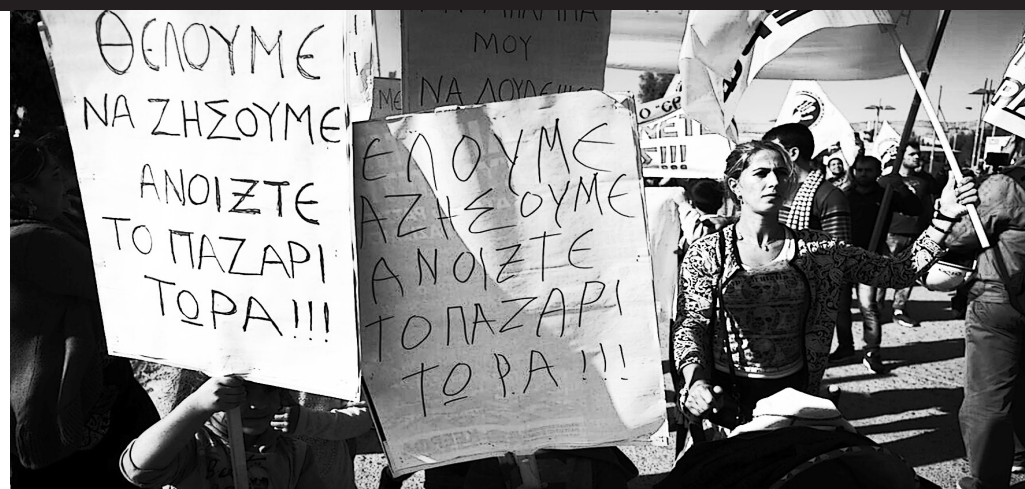 ΘΕΛΟΥΜΕ
ΝΑ ΖΗΣΟΥΜΕ
ΑΝΟΙΞΤΕ
ΤΟ ΠΑΖΑΡΙ
ΤΩΡΑ!!!
ΜΟΥ
ΝΑ
ΜΕ
ΕΛΟΥΜΕ
ΑΖΗΣΟΥΜΕ
ΑΝΟΙΞΤΕ
ΤΟ ΠΑΖΑΡΙ
ΤΩΡΑ!!!